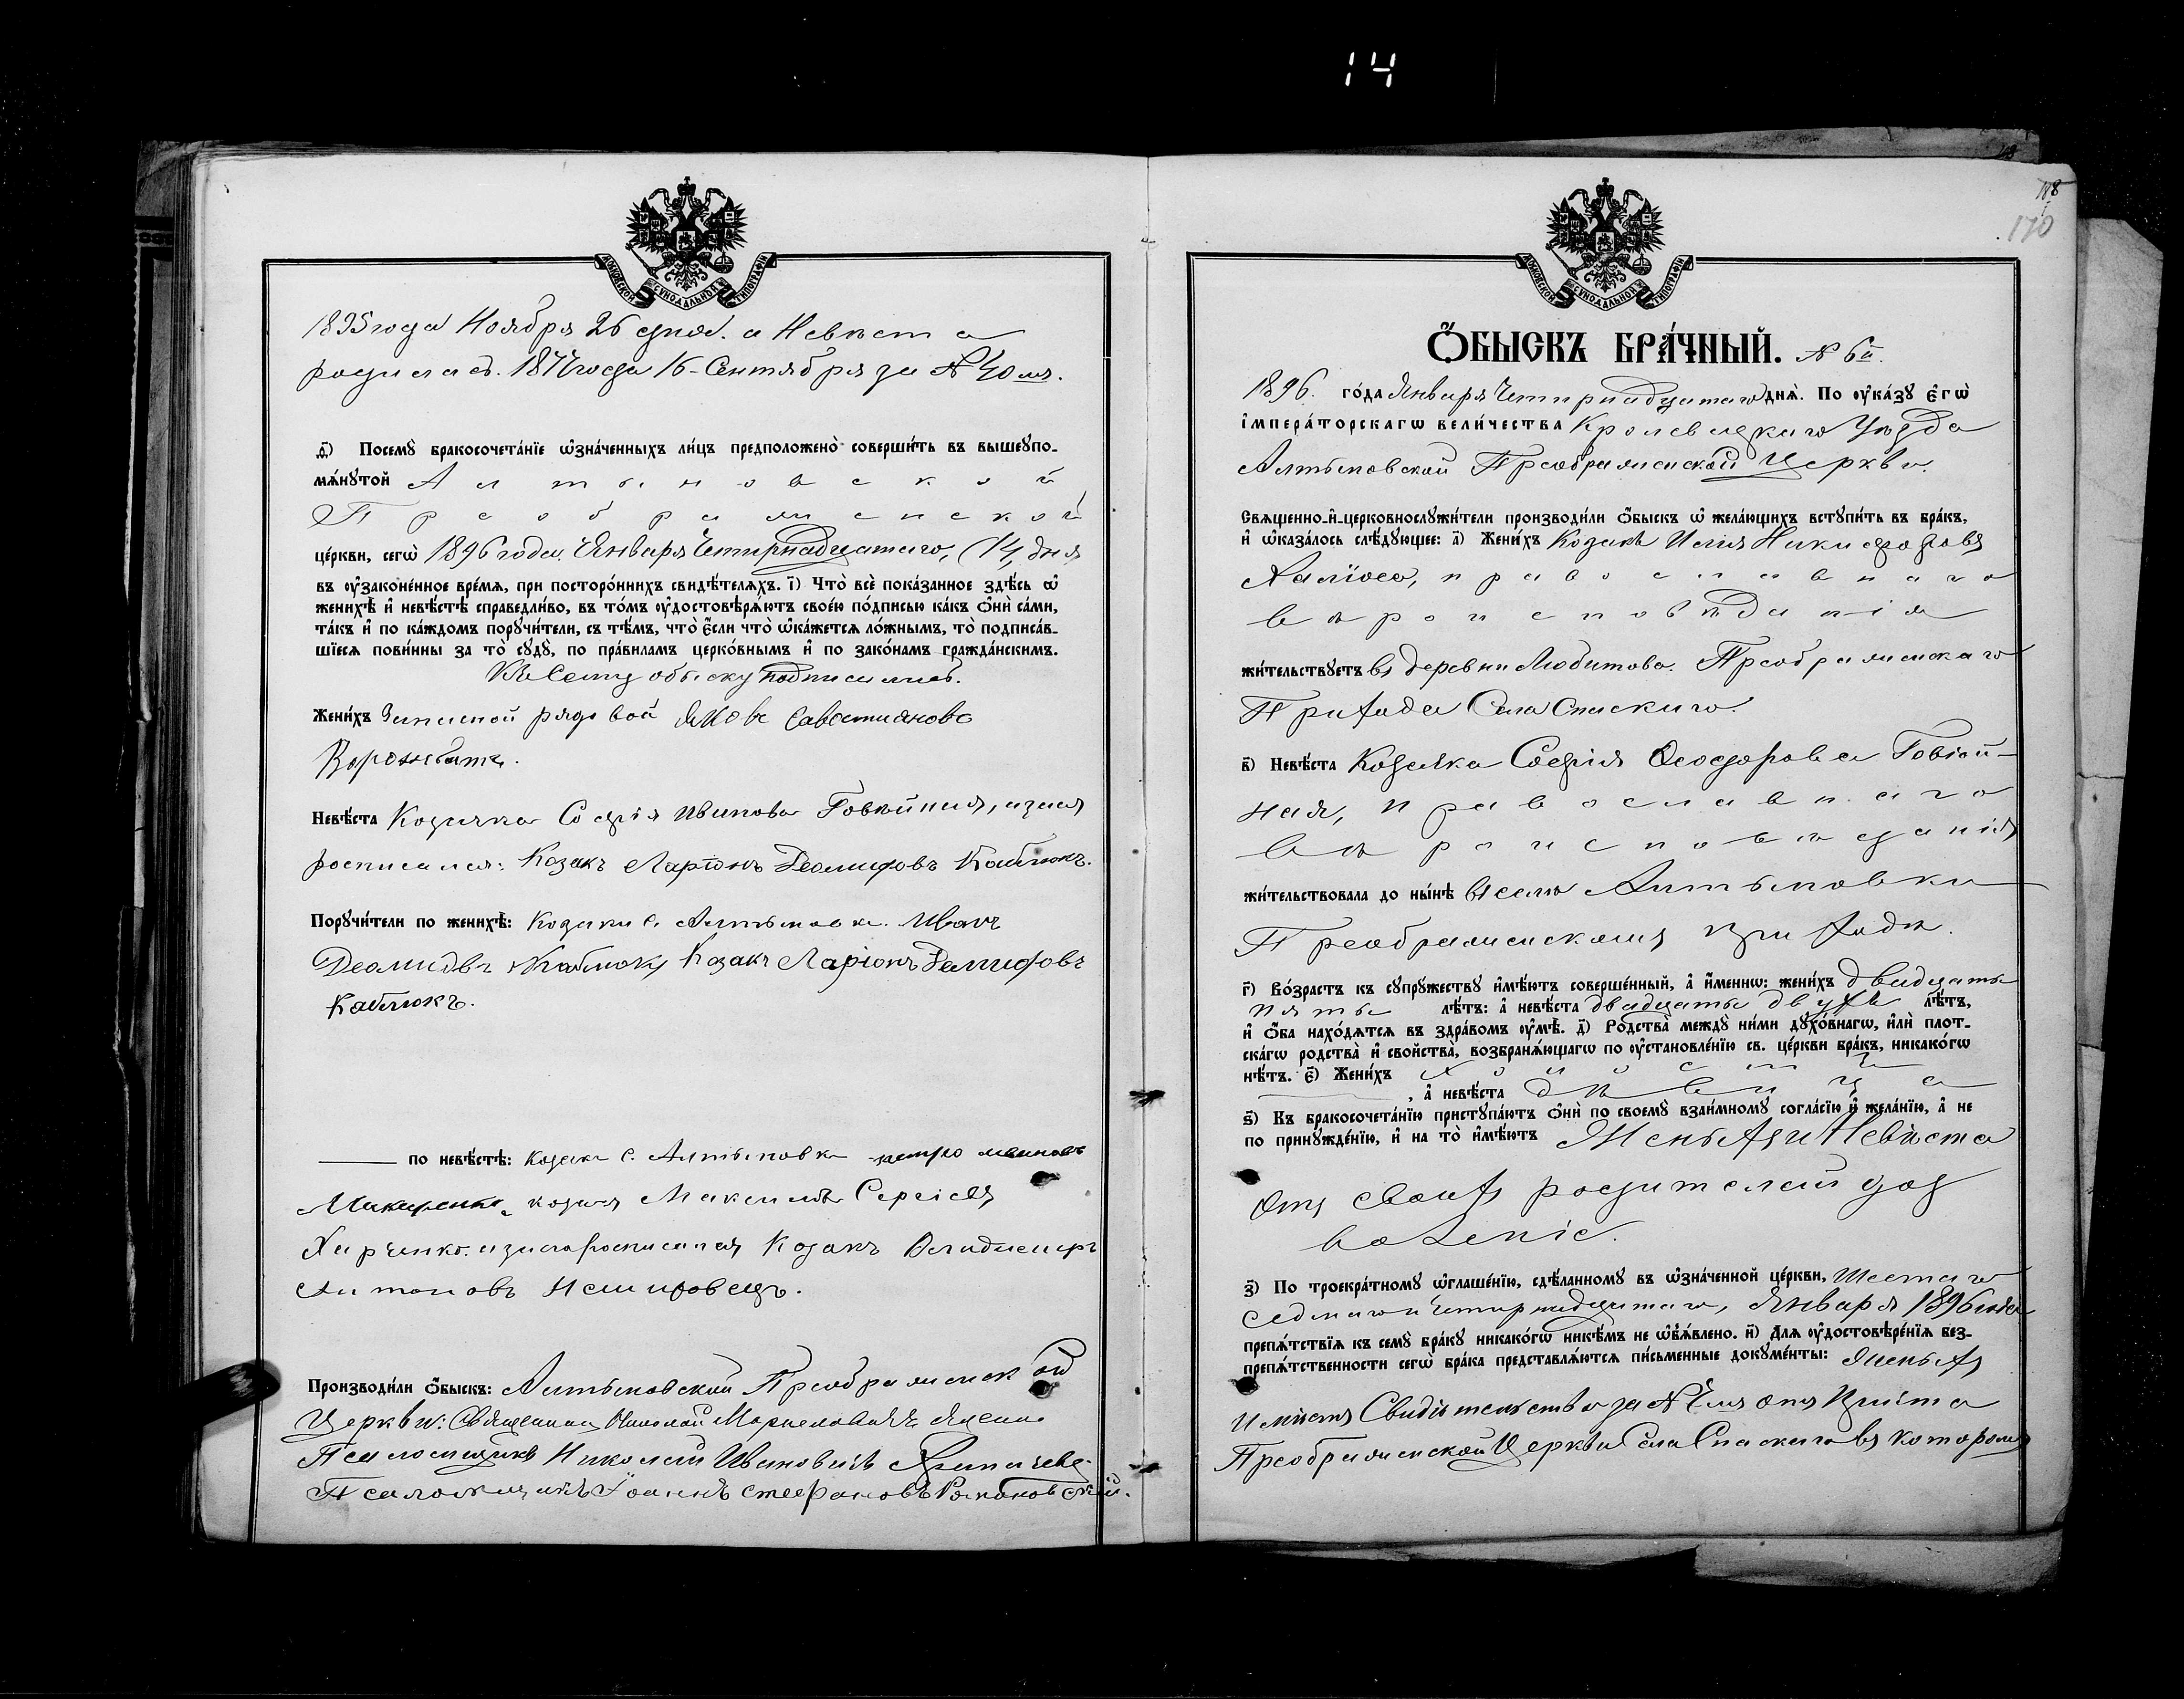 14
118
170
МОСКОВСКОЙ СѴНОДАЛЬНОЙ ТИПОГРАФІИ
1895 года Ноября 26 дня. а Невѣста
родилась. 1874 года 16 Сентября за № 40 мъ.
д҃) Посемꙋ̀ бракосочета́нїе ѡ҆зна́ченныхъ ли́цъ предположено̀ соверши́ть въ вышеꙋпо-
мѧ́нꙋтой Алтыновской
Преображенской
це́ркви, сегѡ̀ 1896 года Января Четырнадцатаго, (14) дня
въ ᲂу҆зако́ненное вре́мѧ, при посторо́ннихъ свидѣ́телѧхъ. і҃) Что̀ всѐ пока́занное здѣ́сь ѡ҆
женихѣ̀ и҆ невѣ́стѣ справедли́во, въ то́мъ ᲂу҆достовѣрѧ́ютъ свое́ю по́дписью ка́къ ѻ҆нѝ са́ми,
та́къ и҆ по ка́ждомъ порꙋчи́тели, съ тѣ́мъ, что̀ є҆́сли что̀ ѡ҆ка́жетсѧ ло́жнымъ, то̀ подписа́в-
шїесѧ пови́нны за то̀ сꙋдꙋ̀, по пра́виламъ церко́внымъ и҆ по зако́намъ гражда́нскимъ.
Къ Сему обыску подписались.
Жени́хъ Запасной рядовой Яковъ Савостиановъ
Ворожбитъ.
Невѣ́ста Козачка Софія Иванова Говѣйная, а за нея
росписался: Козакъ Ларіонъ Деомидовъ Каблюкъ.
Порꙋчи́тели по женихѣ̀: Козаки с. Алтыновки. Иванъ
Деомидовъ Каблюкъ Козакъ Ларіонъ Демидовъ
Каблюкъ.
по невѣ́стѣ: Козаки с. Алтыновки
Макаренко, козакъ Максимъ Сергіевъ
Харченко. а за него росписался Козакъ Владиміръ
Антоновъ Немировецъ.
Производи́ли ѻ҆́быскъ: Алтыновской Преображенской
Церкви: Священникъ Николай
Псаломщикъ Николай Ивановичъ
Псаломщикъ Іоаннъ Стефановъ Романовскій.
МОСКОВСКОЙ СѴНОДАЛЬНОЙ ТИПОГРАФІИ
Ѻ҆́БЫСКЪ БРА́ЧНЫЙ. № 6й.
1896. го́да Января Четырнадцатаго днѧ̀. По ᲂу҆ка́зꙋ є҆гѡ̀
і҆мпера́торскагѡ вели́чества Кролевецкаго Уѣзда
Алтыновской Преображенской Церкви.
Свѧще́нно-и҆-церковнослꙋжи́тели производи́ли ѻ҆́быскъ ѡ҆ жела́ющихъ встꙋпи́ть въ бра́къ,
и҆ ѡ҆каза́лось слѣ́дꙋющее: а҃) Жени́хъ Козакъ Илія Никифоровъ
православнаго
вѣроисповѣданія
жи́тельствꙋетъ въ деревни Любитово. Преображенскаго
Прихода Села Спаскаго.
в҃) Невѣ́ста Козачка Софія Ѳеодорова Говѣй-
ная, православнаго
вѣроисповѣданія
жи́тельствовала до ны́нѣ въ селѣ Алтыновки
Преображенскомъ приходѣ.
г҃) Во́зрастъ къ сꙋпрꙋ́жествꙋ и҆мѣ́ютъ соверше́нный, а҆ и҆́меннѡ: жени́хъ двадцать
пять лѣ́тъ: а҆ невѣ́ста двадцать двухъ лѣ́тъ,
и҆ ѻ҆́ба нахо́дѧтсѧ въ здра́вомъ ᲂу҆мѣ̀. д҃) Родства̀ междꙋ̀ ни́ми дꙋхо́внагѡ, и҆лѝ плот-
ска́гѡ родства̀ и҆ сво́йства, возбранѧ́ющагѡ по ᲂу҆становле́нїю св. це́ркви бра́къ, никако́гѡ
нѣ́тъ. є҃) Жени́хъ холостъ
, а҆ невѣ́ста дѣвица
ѕ҃) Къ бракосочета́нїю пристꙋпа́ютъ ѻ҆нѝ по своемꙋ̀ взаи́мномꙋ согла́сїю и҆ жела́нїю, а҆ не
по принꙋжде́нїю, и҆ на то̀ и҆мѣ́ютъ Женыхъ и Невѣста
отъ своихъ родителей доз
воленіе.
з҃) По троекра́тномꙋ ѡ҆глаше́нїю, сдѣ́ланномꙋ въ ѡ҆зна́ченной це́ркви, шестаго
седмаго и Четырнадцатаго, Января 1896 года
препѧ́тствїѧ къ семꙋ̀ бра́кꙋ никако́гѡ никѣ́мъ не ѡ҆б̾ѧ́влено. и҃) Длѧ ᲂу҆достовѣре́нїѧ без-
препѧ́тственности сегѡ̀ бра́ка представлѧ́ютсѧ пи́сьменные докꙋме́нты: женыхъ
имѣетъ Свидѣтельство за № отъ Причта
Преображенской Церкви Села Спаскаго въ которомъ